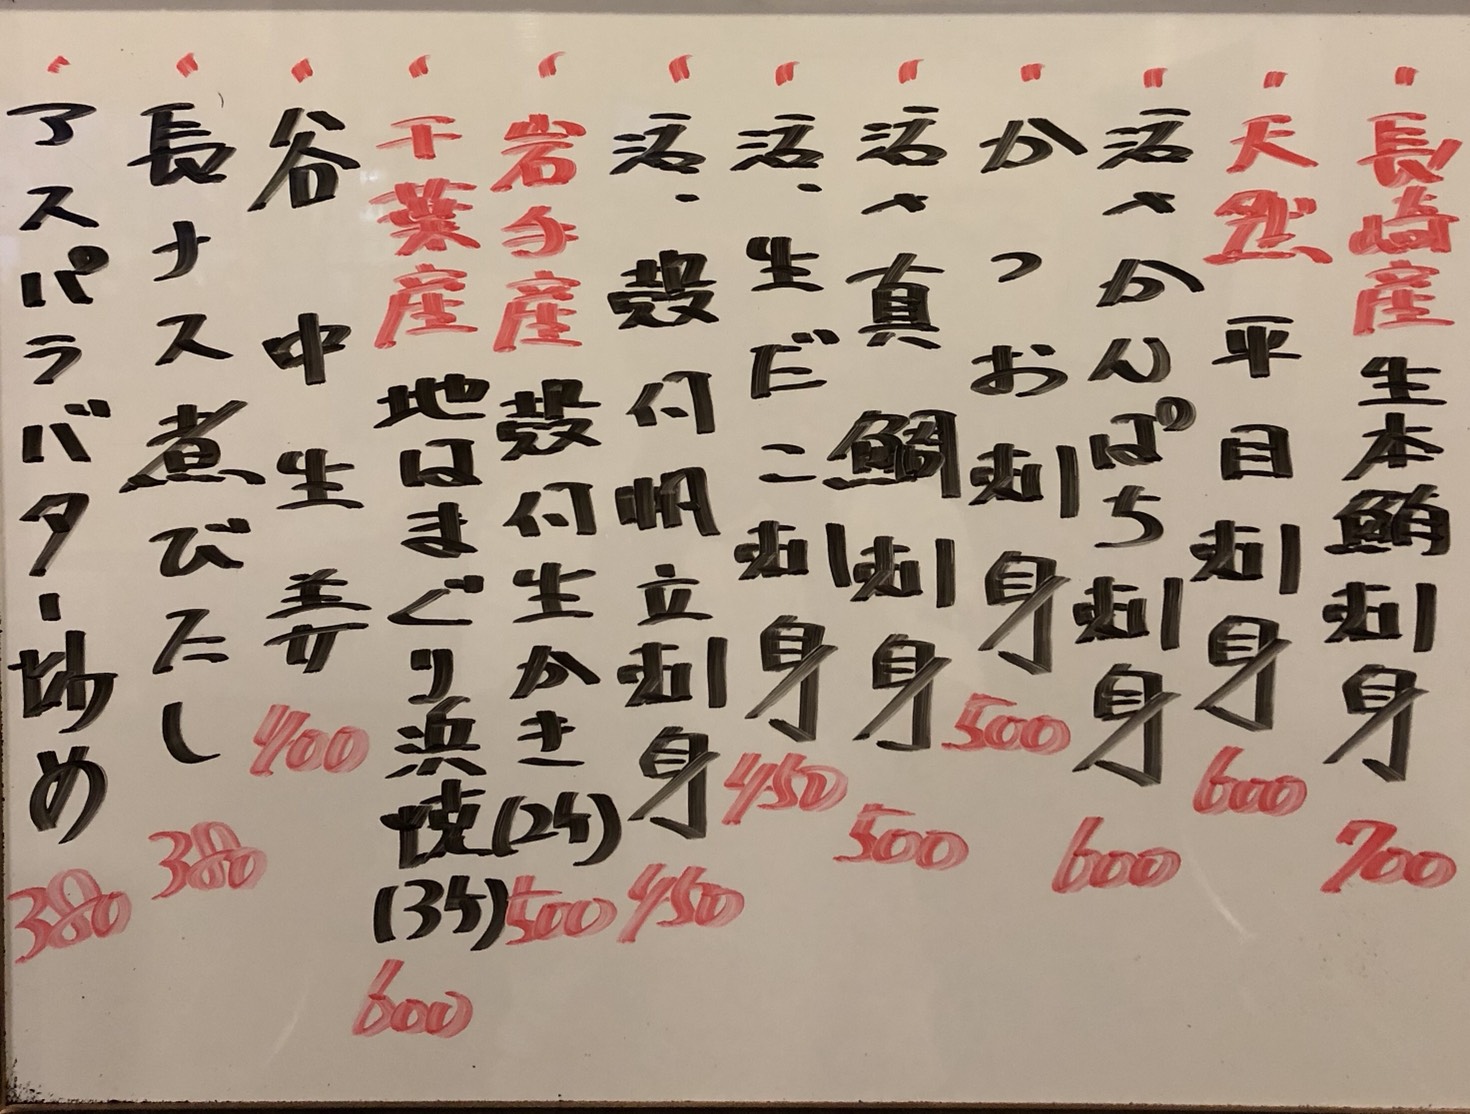 長崎産 生本鮪刺身 700
天然 平目刺身 600
活〆かんぱち刺身 600
かつお刺身 500
活〆真鯛刺身 500
活〆生だこ刺身 450
活〆殻付帆立刺身 450
岩手産 殻付生かき(2ケ) 500
千葉産 地はまぐり浜焼(3ケ) 600
谷中生姜 400
長ナス煮びたし 380
アスパラバター炒め 380